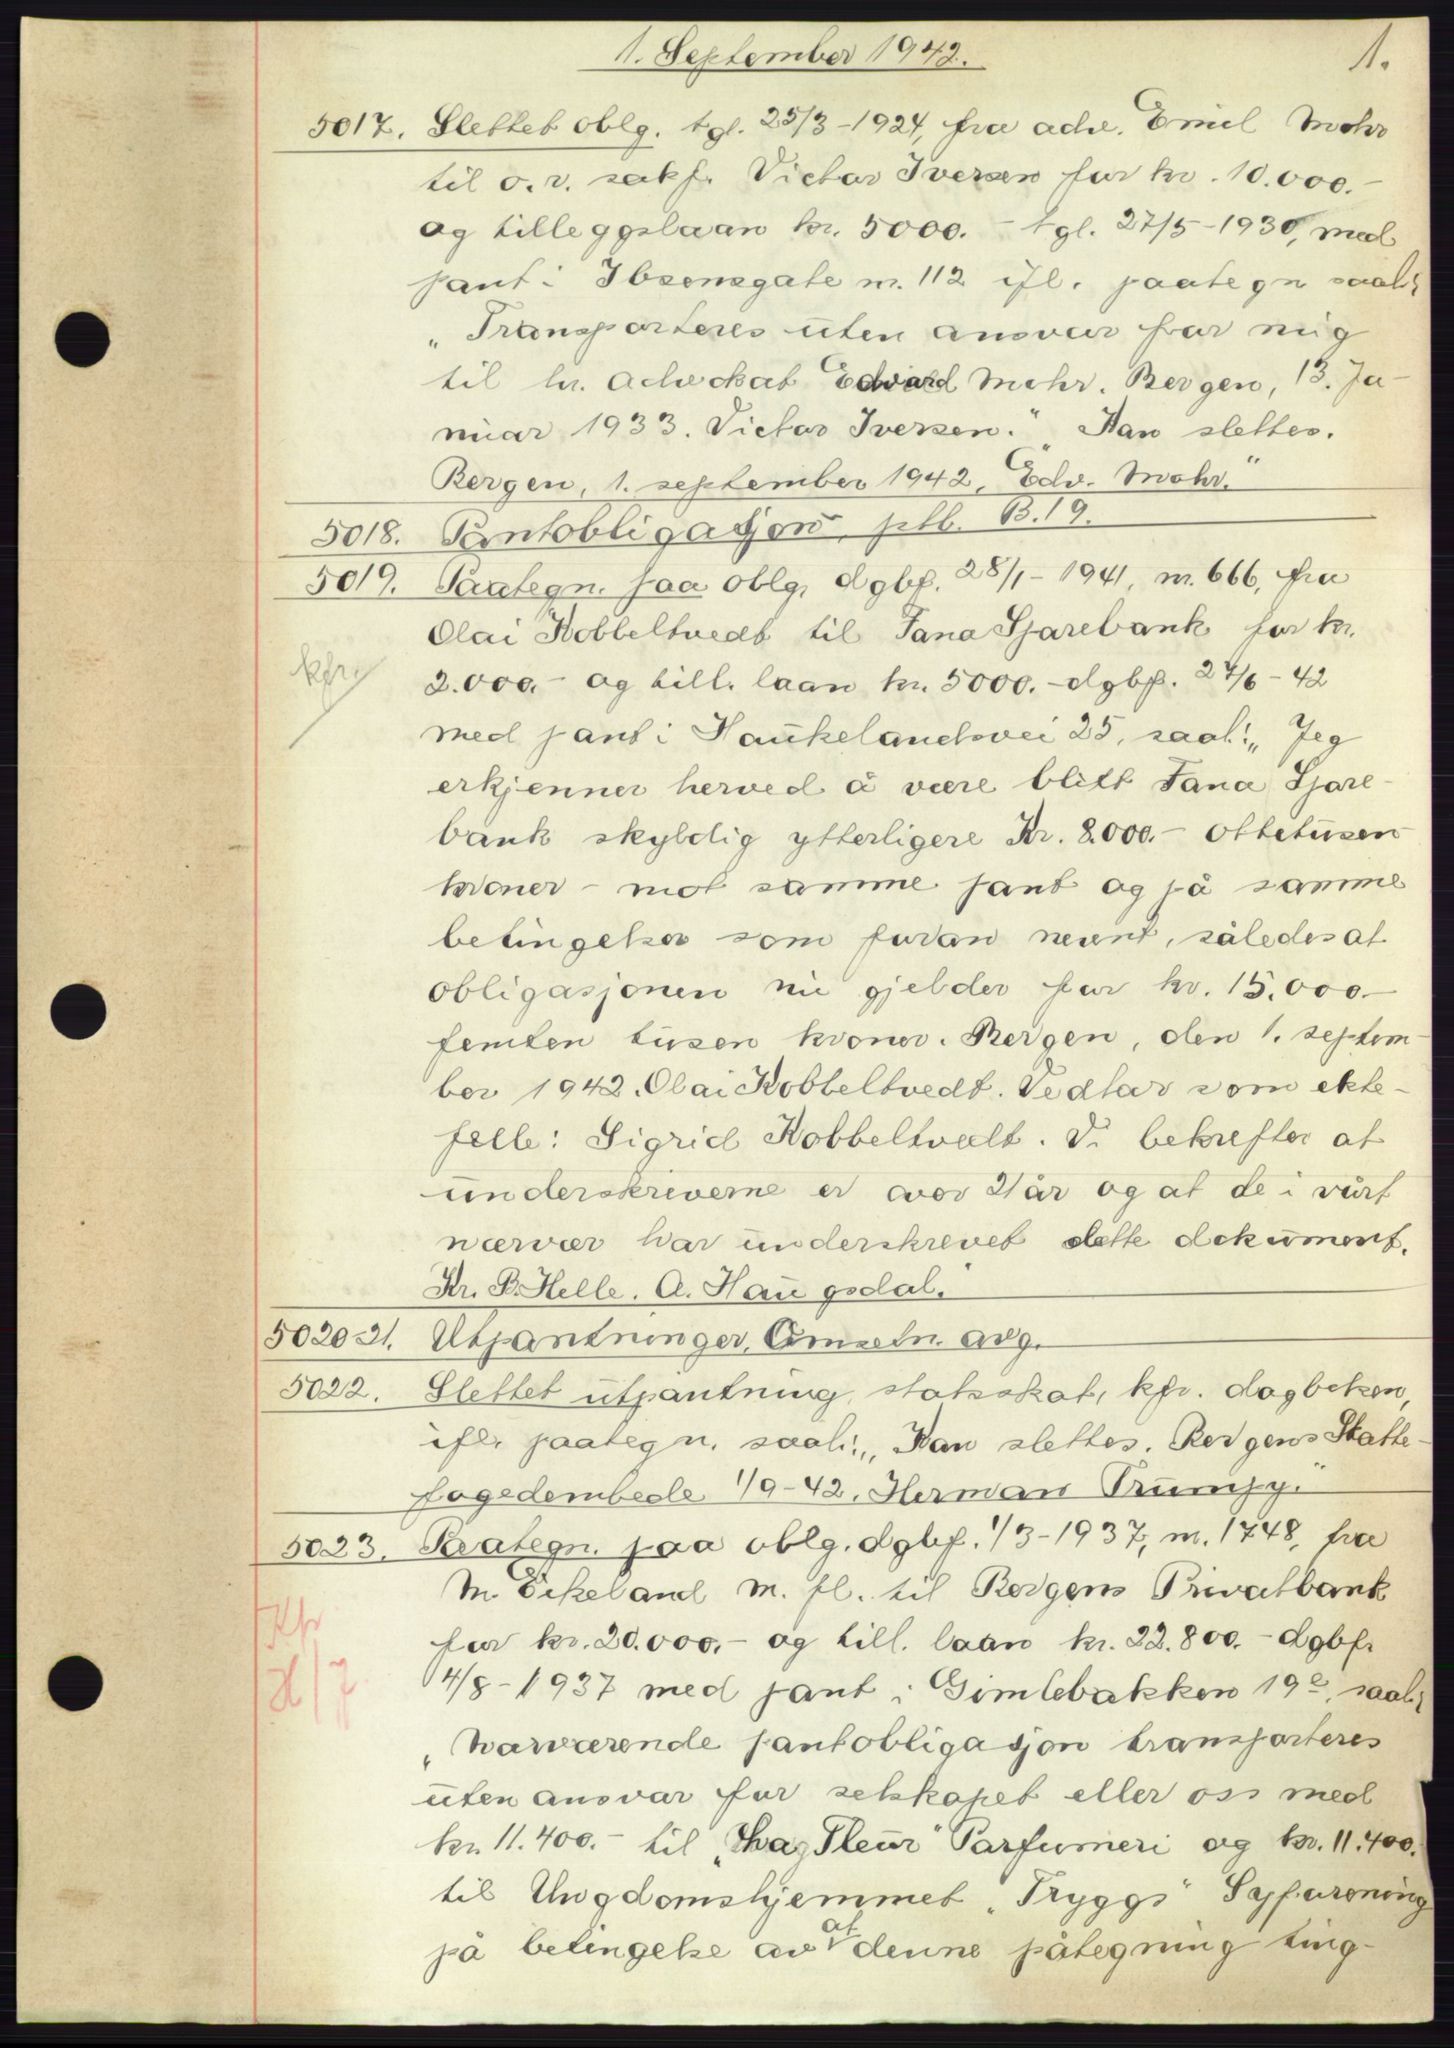 1. September 1942.
1.
5017. Slettet oblg. tgl. 25/3-1924, fra adv. Emil Mohr
til o. r. sakf. Victor Iversen for kr. 10.000.-
og tilleggslaan kr. 5000.- tgl. 27/5-1930, med
pant i Ibsensgate nr. 112 ifl. paategn saal:
„Transporteres uten ansvar for mig
til hr. advokat Edvard Mohr. Bergen, 13. Ja-
nuar 1933. Victor Iversen." „Kan slettes.
Bergen, 1. september 1942. Edv. Mohr."
5018. Pantobligasjon, ptb. B.19.
5019. Paategn. paa oblg. dgbf. 28/1-1941, nr. 666, fra
Olai Kobbeltvedt til Fana Sparebank for kr.
kfr.
2.000.- og till. laan kr. 5000.- dgbf. 27/6-42
med pant i Haukelandsvei 25, saal: „Jeg
erkjenner herved å være blitt Fana Spare-
bank skyldig ytterligere Kr. 8.000.- ottetusen
kroner - mot samme pant og på samme
betingelser som foran nevnt, således at
obligasjonen nu gjelder for kr. 15.000.-
femten tusen kroner. Bergen, den 1. septem-
ber 1942. Olai Kobbeltvedt. Vedtar som ekte-
felle: Sigrid Kobbeltvedt. Vi bekrefter at
underskriverne er over 21 år og at de i vårt
nærvær har underskrevet dette dokument.
Kr. B. Helle. A. Haugsdal."
5020-21. Utpantninger, Omsetn. avg.
5022. Slettet utpantning, statsskat, kfr. dagboken,
ifl. paategn. saal: „Kan slettes. Bergens Skatte-
fogedembede 1/9-42. Herman Trumpy."
5023. Paategn. paa oblg. dgbf. 1/3-1937, nr. 1748, fra
M. Eikeland m. fl. til Bergens Privatbank
Kfr
for kr. 20.000.- og till. laan kr. 22.800.- dgbf.
4/8-1937 med pant i Gimlebakken 19e, saal:
„Nærværende pantobligasjon transporteres
uten ansvar for selskapet eller oss med
kr. 11.400.- til „ Fleur" Parfumeri og kr. 11.400.
til Ungdomshjemmet „Tryggs" Syforening
på betingelse av at denne påtegning ting-